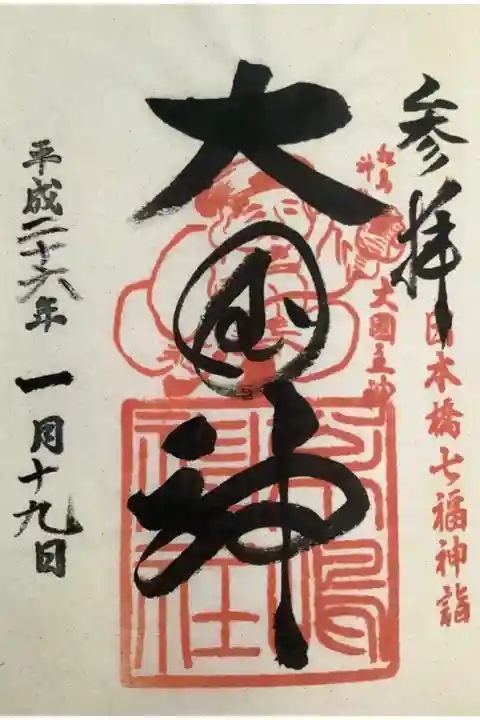 参拝
日本橋七福神詣
松島神社
大國主神
大国神
松島神社
平成二十六年 一月十九日